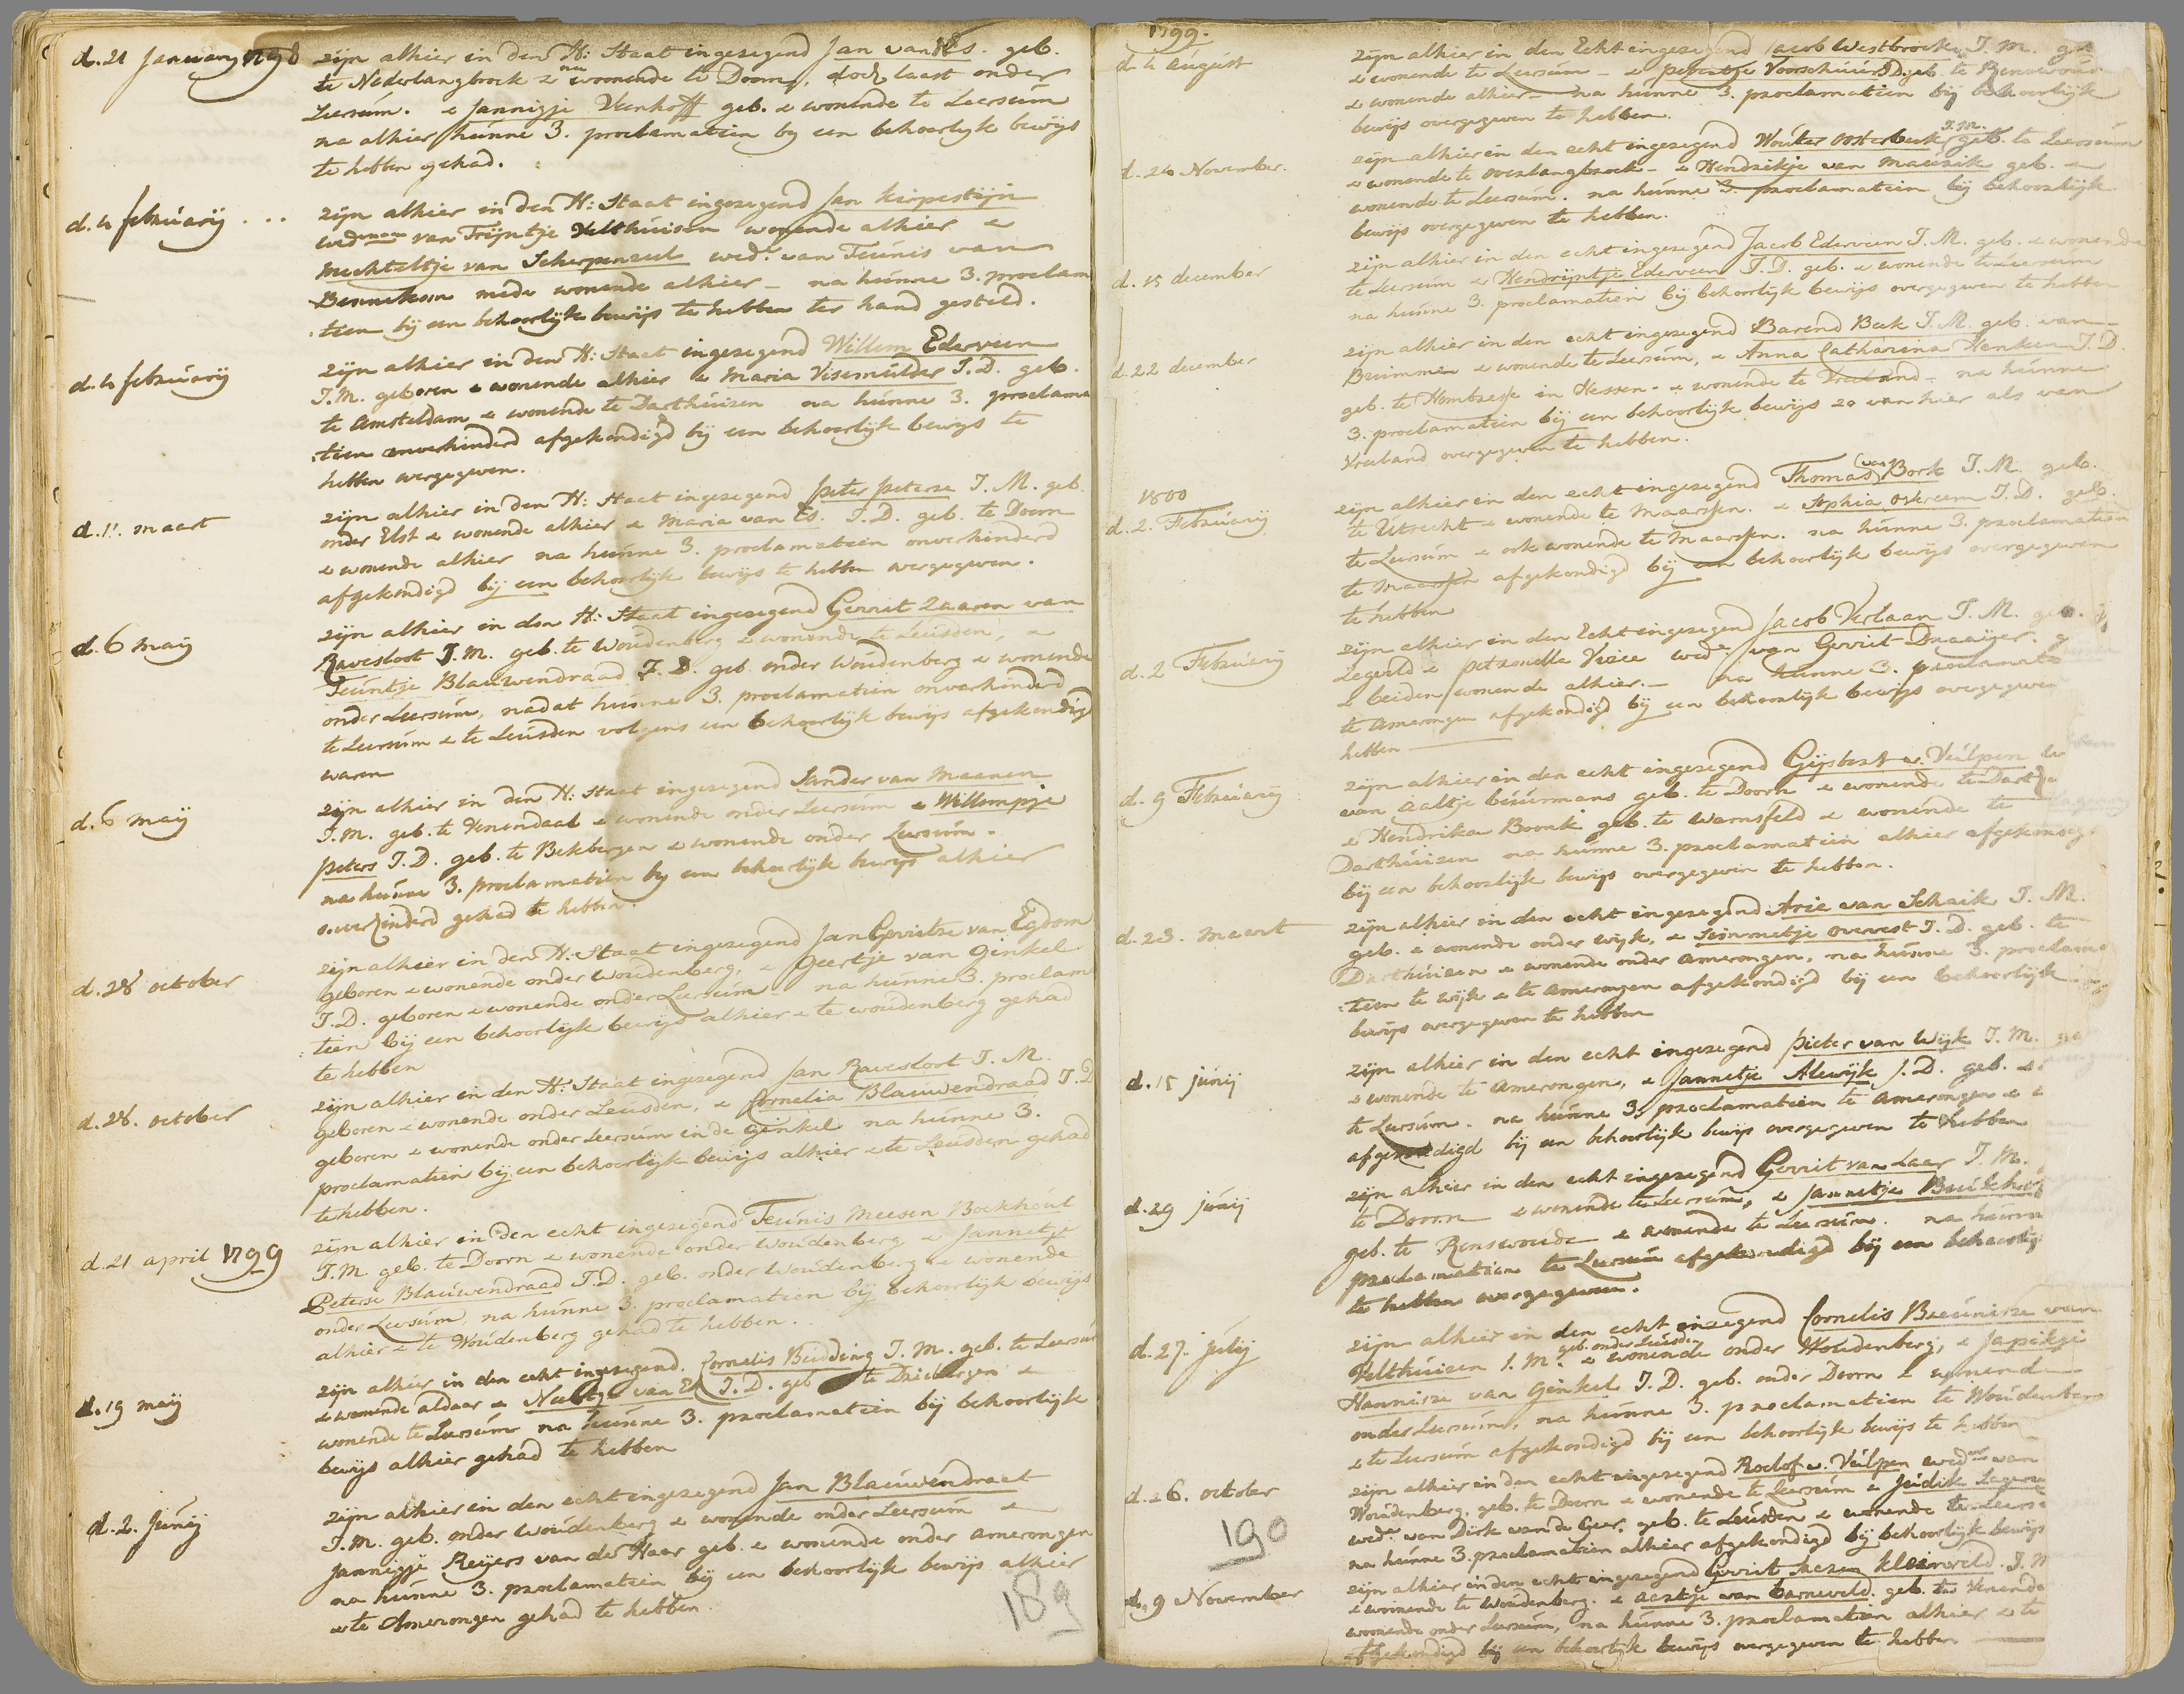 d. 21 Januarij 1798 zijn alhier in den H: Staat ingezegend Jan van Es. geb.
te Nederlangbroek & nu woonende te Doorn, doch laast onder
Leersum. & Jannigje Veenhoff geb. & wonende te Leersum
na alhier hunne 3. proclamatien by een behoorlyk bewijs
te hebben gehad.
d. 4 februarij ... zijn alhier in den H: Staat ingezegend Jan Kirpestijn
wed:man van Trijntje Velthuisen wonende alhier &
Mechteltje van Scherpenzeel wed:e van Teunis van
Bennekom mede wonende alhier – na hunne 3. proclama
:tien bij een behoorlijk bewijs te hebben ter hand gesteld.
d. 4 februarij zijn alhier in den H: Staat ingezegend Willem Ederveen
J.M. geboren & wonende alhier & Maria Visemulder J.D. geb.
te Amsteldam & wonende te Darthuizen na hunne 3. proclama
:tien onverhinderd afgekondigd bij een behoorlijk bewijs te
hebben overgegeven.
d. 11. maart zijn alhier in den H: Staat ingezegend Peter Peterse J.M. geb.
onder Elst & wonende alhier & Maria van Es. J.D. geb. te Doorn
& wonende alhier na hunne 3. proclamatien onverhinderd
afgekondigd bij een behoorlijk bewijs te hebben overgegeven.
d. 6 maij zijn alhier in den H: Staat ingezegend Gerrit Zaaren van
Ravesloot J.M. geb. te Woudenberg & wonende te Leusden, &
Teuntje Blauwendraad J.D. geb. onder Woudenberg & wonende
onder Leersum, nadat hunne 3. proclamatien onverhinderd
te Leersum & te Leusden volgens een behoorlijk bewijs afgekondigd
waren
d. 6 maij zijn alhier in den H: Staat ingezegend Sander van Maanen
J.M. geb. te Venendaal & wonende onder Leersum & Willempje
Peters J.D. geb. te Bekbergen & wonende onder Leersum.
na hunne 3. proclamatien by een behoorlijk bewijs alhier
o.verhinderd gehad te hebben.
d. 28 october zijn alhier in den H: Staat ingezegend Jan Gerritse van Egdom
geboren & wonende onder Woudenberg, & Geertje van Ginkel
J.D. geboren & wonende onder Leersum – na hunne 3. proclama
:tien bij een behoorlijk bewijs alhier & te woudenberg gehad
te hebben
d. 28. october zijn alhier in den H: Staat ingezegend Jan Ravesloot J.M.
geboren & wonende onder Leusden, & Cornelia Blauwendraad J.D
geboren & wonende onder Leersum in de Ginkel na hunne 3.
proclamatien bij een behoorlijk bewijs alhier & te Leusden gehad
te hebben.
d. 21 april 1799 zijn alhier in den echt ingezegend Teunis Meesen Bockhout
J.M. geb. te Doorn & wonende onder Woudenberg & Jannetje
Peterse Blauwendraad J.D. geb. onder Woudenberg & wonende
onder Leersum, na hunne 3. proclamatien bij behoorlijk bewijs
alhier & te Woudenberg gehad te hebben.
d. 19 maij zijn alhier in den echt ingezegend. Cornelis Budding J.M. geb. te Leersum
& wonende aldaar & Neeltje van Ek J.D. geb te Driebergen &
wonende te Leersum na hunne 3. proclamatien bij behoorlijk
bewijs alhier gehad te hebben
d. 2. Junij zijn alhier in den echt ingezegend Jan Blauwendraat
J.M. geb. onder Woudenberg & wonende onder Leersum &
Jannigje Reijers van de Haar geb. & wonende onder Amerongen
na hunne 3. proclamatien bij een behoorlijk bewijs alhier
& te Amerongen gehad te hebben.
189
1799.
d. 4 august zijn alhier in den Echt ingezegend Jacob Westbroek J.M. geb
& wonende te Leersum – & Peterje Voorschuur J.D. geb. te Renswoud
& wonende alhier – na hunne 3. proclamatien bij behoorlijk
bewijs overgegeven te hebben.
d. 24 November. zijn alhier in den echt ingezegend Wouter Oosterbeek J.M. geb. te Leersum
& wonende te Overlangbroek – & Hendrikje van Maurik geb. &
wonende te Leersum. na hunne 3. proclamatien bij behoorlijk
bewijs overgegeven te hebben.
d. 15 december zijn alhier in den echt ingezegend Jacob Ederveen J.M. geb. & wonende
te Leersum & Hendrijntje Ederveen J.D. geb. & wonende te Leersum
na hunne 3. proclamatien bij behoorlijk bewijs overgegeven te hebben
d. 22 december zijn alhier in den echt ingezegend Barend Beek J.M. geb. van
Brummen & wonende te Leersum, & Anna Catharina Henken J.D.
geb. te Hombresse in Hessen. & wonende te Vreeland – na hunne
3. proclamatien bij een behoorlijk bewijs zo van hier als van
Vreeland overgegeven te hebben.
1800
d. 2. Februarij zijn alhier in den echt ingezegend Thomas van Bork J.M. geb.
te Utrecht & wonende te Maarssen. & Sophia Oskreem J.D. geb.
te Leersum & ook wonende te Maarssen. na hunne 3. proclamatien
te Maarssen afgekondigd bij een behoorlijk bewijs overgegeven
te hebben
d. 2 Februarij zijn alhier in den Echt ingezegend Jacob Verlaan J.M.
Zegveld & Petronella Vizie wed:e van Gerrit Draaijer. g
& beiden wonende alhier. – na hunne 3. proclamat
te Amerongen afgekondigd bij een behoorlijk bewijs overgegeven
hebben
d. 9 Februarij zijn alhier in den echt ingezegend Gijsbert v. Vulpen
van Aaltje Buurmans geb. te Doorn & wonende te Dart
& Hendrika Bornk geb. te Warnsfeld & wonende te
Darthuizen na hunne 3. proclamatien alhier afgekondigd
bij een behoorlijk bewijs overgegeven te hebben.
d. 23. maart zijn alhier in den echt ingezegend Arie van Schaik J.M.
geb. & wonende onder wijk, & Seinmetje Overest J.D. geb. te
Darthuizen & wonende onder Amerongen, na hunne 3. proclama
:tien te wijk & te Amerongen afgekondigd bij een behoorlijk
bewijs overgegeven te hebben
d. 15 junij zijn alhier in den echt ingezegend Pieter van Wijk J.M.
& wonende te Amerongen, & Jannetje Alewijk J.D. geb. &
te Leersum. na hunne 3. proclamatien te Amerongen &
afgekondigd bij een behoorlijk bewijs overgegeven te hebben
d. 29 junij zijn alhier in den echt ingezegend Gerrit van Laar J.M.
te Doorn & wonende te Leersum, & Jannetje
geb. te Renswoude & wonende te Leersum. na hunne
proclamatien te Leersum afgekondigd bij een behoorlijk
te hebben overgegeven.
d. 27. julij zijn alhier in den echt inzegend Cornelis Breunisze van
Velthuizen J.M. geb. onder Leusden & wonende onder Woudenberg, & Japikje
Hannisze van Ginkel J.D. geb. onder Doorn & wonende
onder Leersum, na hunne 3. proclamatien te Woudenberg
& te Leersum afgekondigd bij een behoorlijk bewijs te hebben
d. 26. october zijn alhier in den echt ingezegend Roelof v. Vulpen wed:nr van
Woudenberg, geb. te Doorn & wonende te Leersum & Judik
wed:e van Dirk van de Geer, geb. te Leusden & wonende te Leers
na hunne 3. proclamatien alhier afgekondigd bij behoorlijk bewijs
190
d. 9 November zijn alhier in den echt ingezegend Gerrit kleinveld. J.M
& wonende te Woudenberg. & Aertje van Barneveld. geb. te Venenda
woonende onder Leersum, na hunne 3. proclamatien alhier & te
afgekondigd bij een behoorlijk bewijs overgegeven te hebben